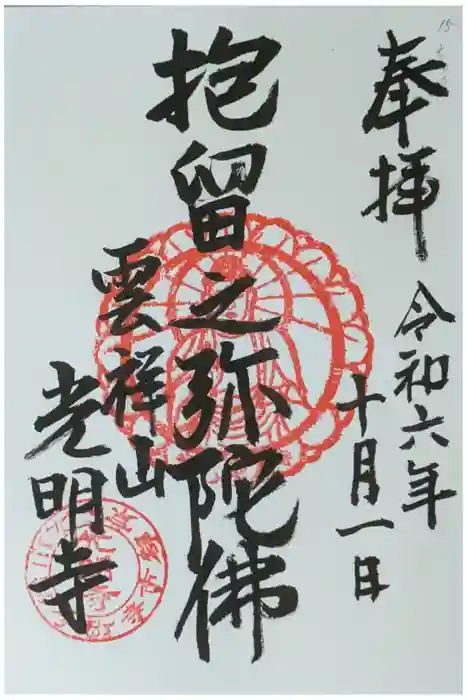 15
奉拝
令和六年
十月一日
抱留之弥陀佛
雲祥山
光明寺